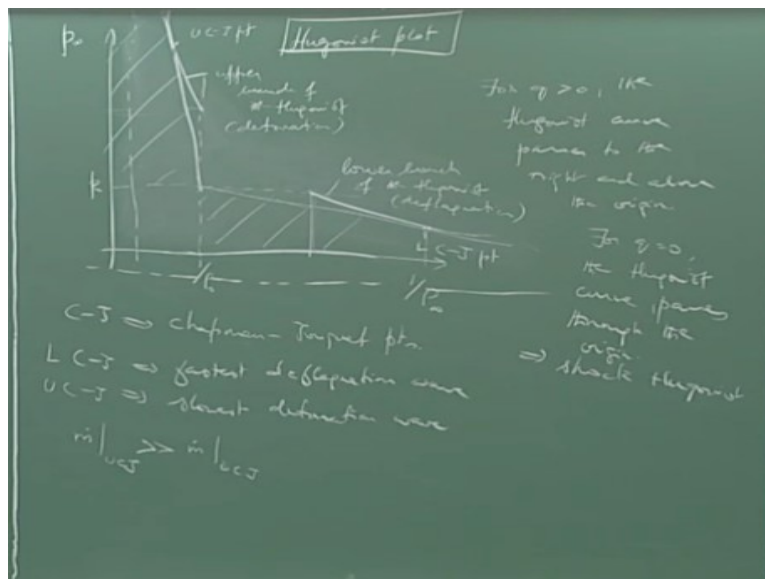 p∞
U C-J pt
Hugoniot plot
upper
branch of
Hugoniot
(detonation)
lower branch
of Hugoniot
(deflagration)
L C-J pt
For q > 0, the
Hugoniot curve
passes to the
right and above
the origin.
For q = 0,
the Hugoniot
curve passes
through the
origin.
⇒ shock Hugoniot
C-J ⇒ Chapman-Jouguet pts.
L C-J ⇒ fastest deflagration wave
U C-J ⇒ slowest detonation wave
ṁ|UCJ >> ṁ|LCJ